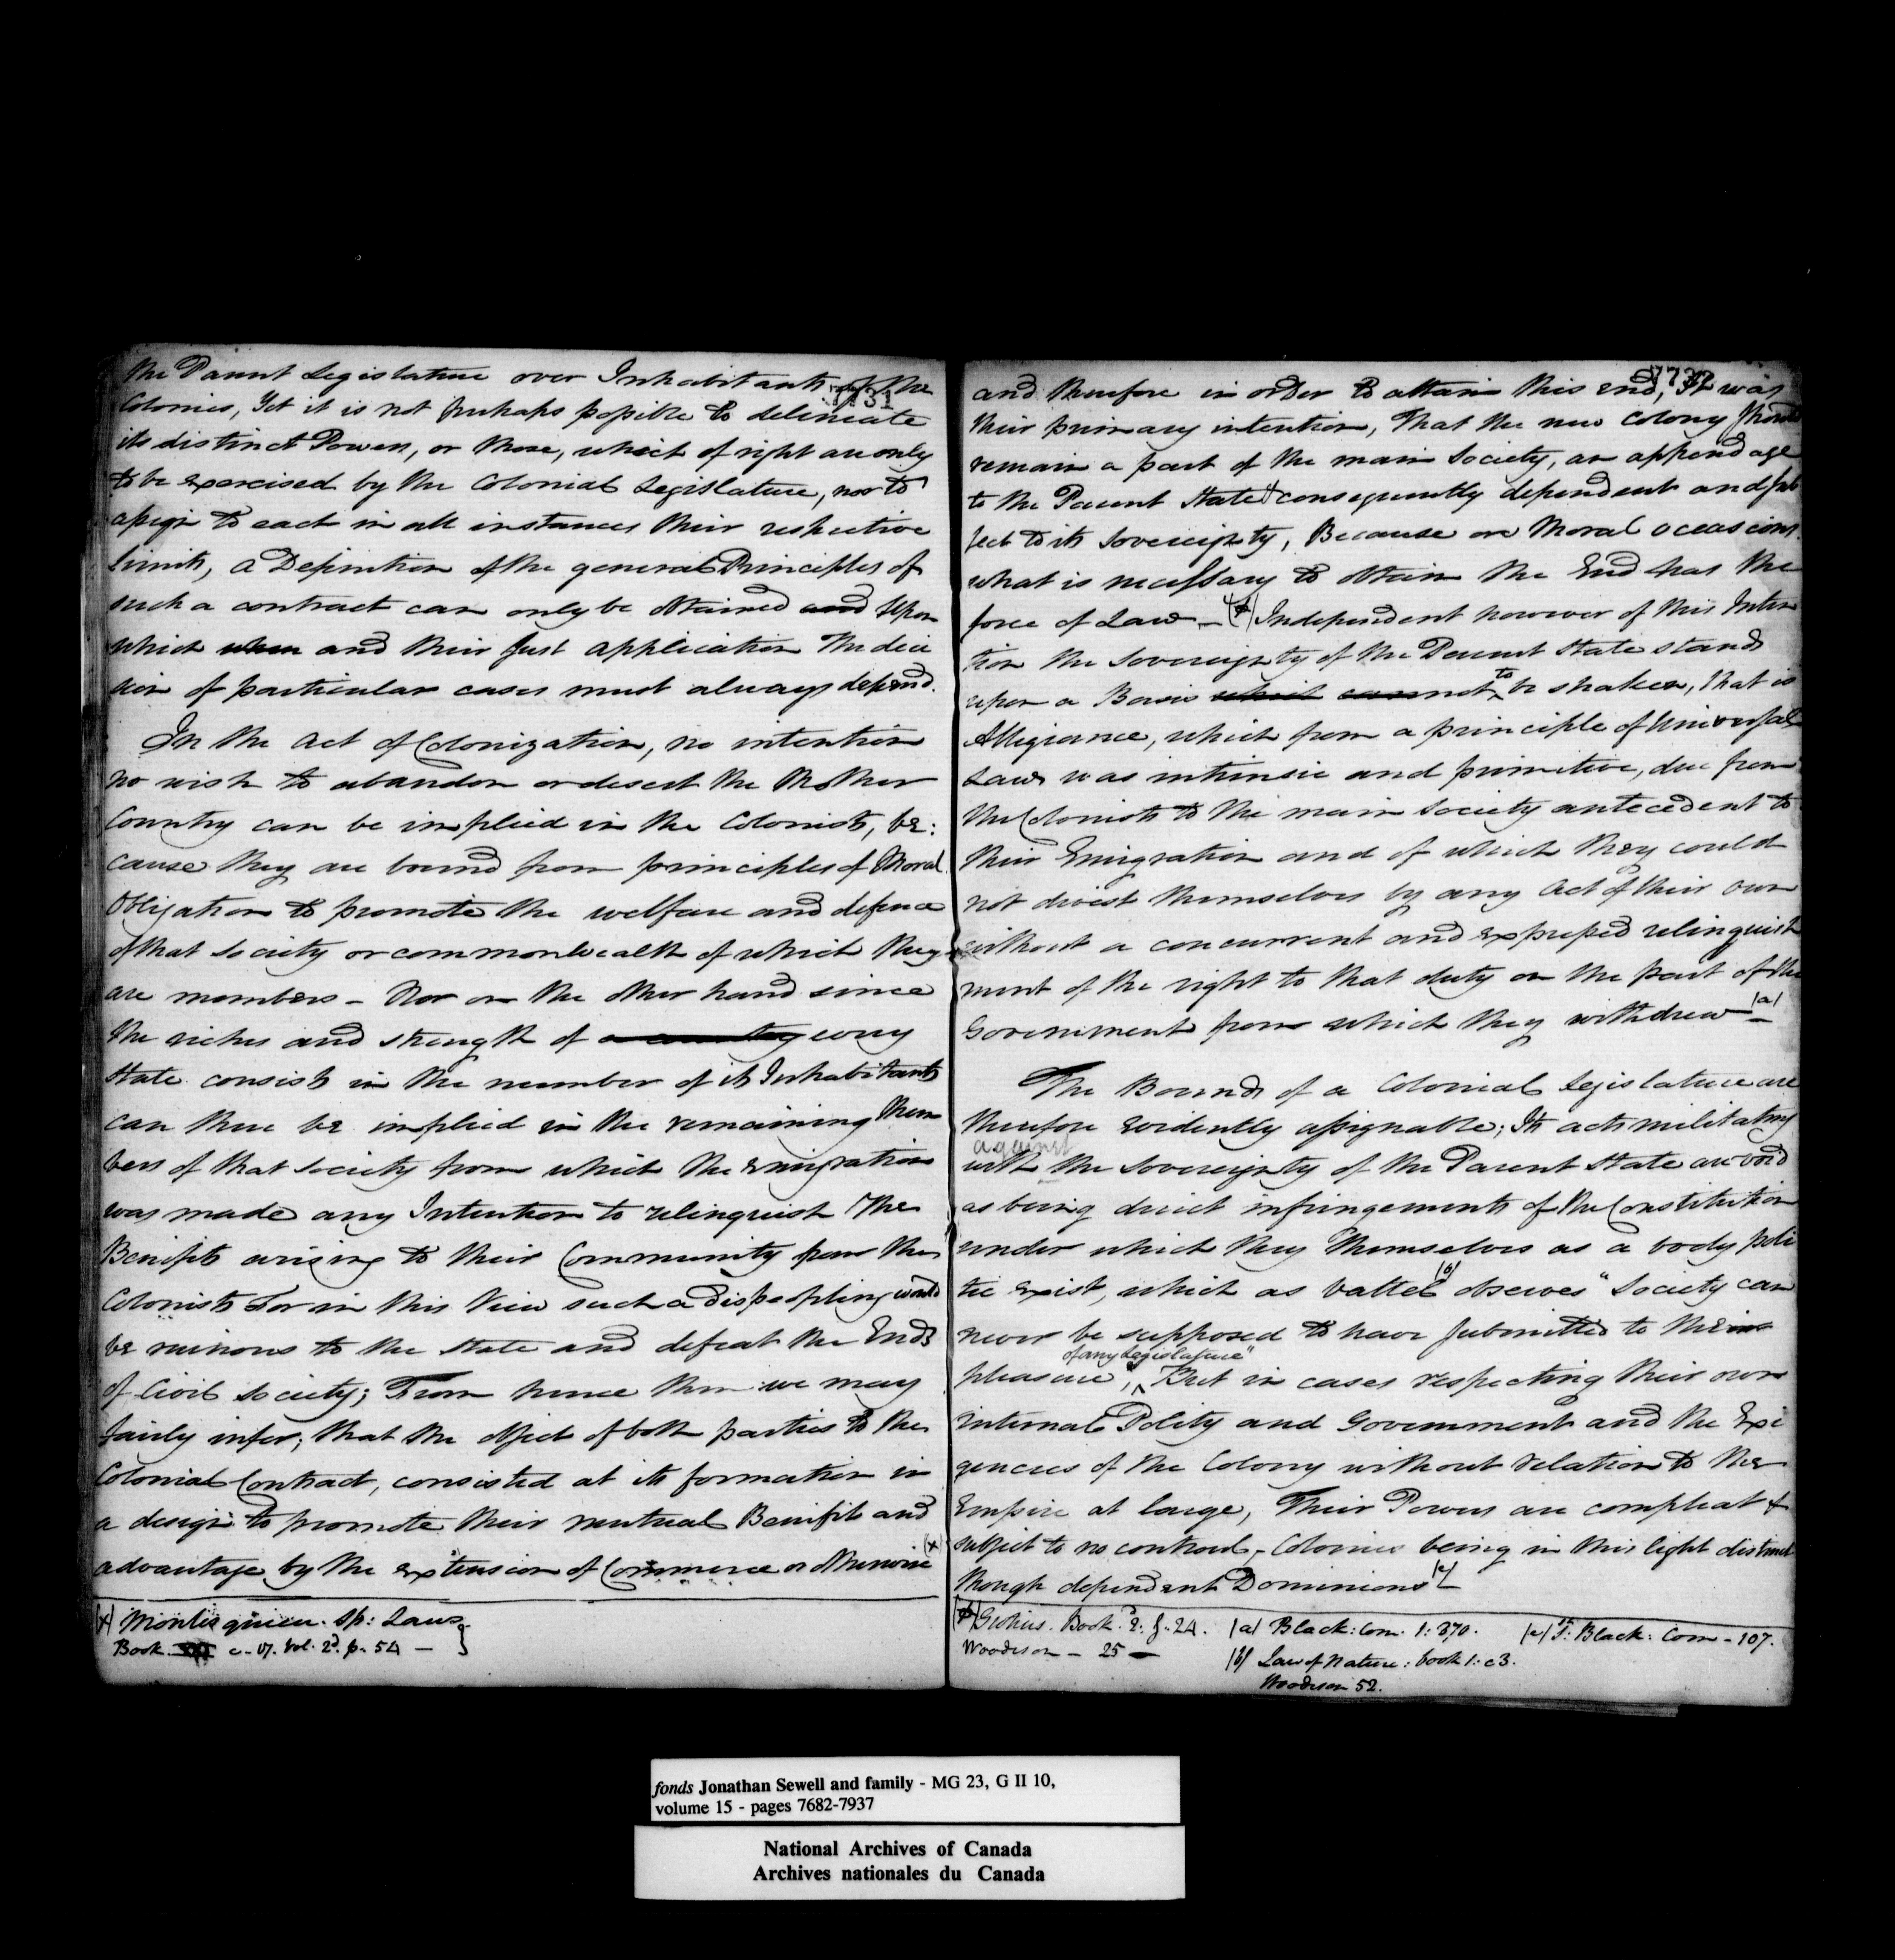 7731
the Parent Legislature over Inhabitants of the
Colonies, Yet it is not perhaps possible to delineate
its distinct Powers, or those, which of right are only
to be exercised by the Colonial Legislature, nor to
assign to each in all instances their respective
limits, a Definition of the general Principles of
such a contract can only be obtained and upon
which when and their just application The deci
sion of particular cases must always depend.
In the Act of Colonization, no intention
no wish to abandon or desert the Mother
Country can be implied in the Colonists, be:
cause they are bound from principles of Moral
Obligation to promote the welfare and defence
of that Society or commonwealth of which they
are members - Nor on the other hand since
the riches and strength of a country every
State consists in the number of its Inhabitants
can there be implied in the remaining Mem
bers of that Society from which the Emigration
was made any Intention to relinquish the
Benifits arising to their Community from the
Colonists For in this View such a dispeopling would
be ruinous to the State and defeat the Ends
of Civil Society; From hence then we may
fairly infer, that the object of both parties to the
Colonial Contract, consisted at its formation in
a design to promote their mutual Benifit and
advantage by the extension of Commerce or otherwise (x)
(x) Montisquieu. Sp: Laws
Book c- 17. Vol. 2d. p- 54 -
7732
and therefore in order to attain this end, It was
their primary intention, That the new Colony should
remain a part of the main Society, an appendage
to the Parent State & consequently dependent and sub
ject to its Sovereignty, Because on Moral occasions
what is necessary to obtain the End has the
force of Law - Independent however of this Inten
tion the Sovereignty of the Parent State stands
upon a Basis which cannot to be shaken, that is
Allegiance, which from a principle of Universal
Law was intrinsic and primitive, due from
the Colonists to the main Society antecedent to
their Emigration and of which they could
not divest themselves by any Act of their own
without a concurrent and expressed relinquish
ment of the right to that duty on the part of the
Government from which they withdrew - (a)
The Bounds of a Colonial Legislature are
therefore evidently assignable; Its acts militating
against
with the Sovereignty of the Parent State are void
as being direct infringements of the Constitution
under which they themselves as a body poli
tic exist, which as Vattel (b) observes "Society can
never be supposed to have submitted to their
of any Legislature"
pleasure, But in cases respecting their own
internal Polity and Government and the Exi
gencies of the Colony without relation to the
Empire at large, Their Powers are compleat &
subject to no controul, - Colonies being in this light distinct
though dependent Dominions (c)
Grotius. Book. 2: f- 24.
Woodeson - 25 -
(a) Black: Com. 1: 370.
(b) Law of Nature: book 1: c3.
Woodeson 52.
(c) 1: Black: Com - 107.
fonds Jonathan Sewell and family - MG 23, G II 10,
volume 15 - pages 7682-7937
National Archives of Canada
Archives nationales du Canada